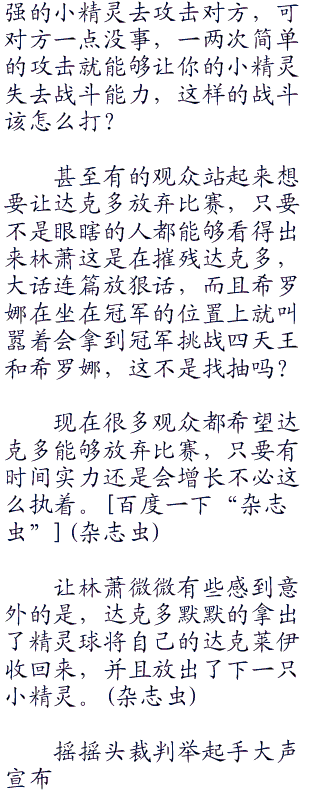 强的小精灵去攻击对方，可
对方一点没事，一两次简单
的攻击就能够让你的小精灵
失去战斗能力，这样的战斗
该怎么打？
甚至有的观众站起来想
要让达克多放弃比赛，只要
不是眼瞎的人都能够看得出
来林萧这是在摧残达克多，
大话连篇放狠话，而且希罗
娜在坐在冠军的位置上就叫
嚣着会拿到冠军挑战四天王
和希罗娜，这不是找抽吗？
现在很多观众都希望达
克多能够放弃比赛，只要有
时间实力还是会增长不必这
么执着。[百度一下“杂志
虫”](杂志虫)
让林萧微微有些感到意
外的是，达克多默默的拿出
了精灵球将自己的达克莱伊
收回来，并且放出了下一只
小精灵。(杂志虫)
摇摇头裁判举起手大声
宣布